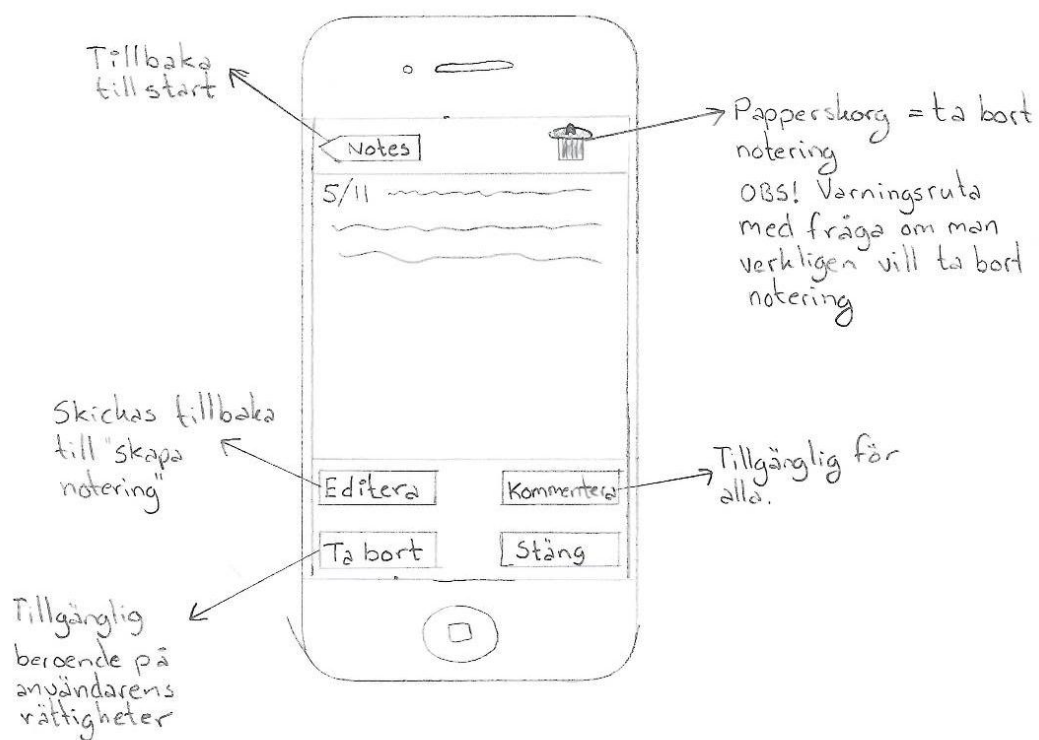 Tillbaka
till start
Notes
Papperskorg = ta bort
notering
OBS! Varningsruta
med fråga om man
verkligen vill ta bort
notering
5/11
Skickas tillbaka
till "skapa
notering"
Editera
Kommentera
Tillgänglig för
alla.
Ta bort
Stäng
Tillgänglig
beroende på
användarens
rättigheter